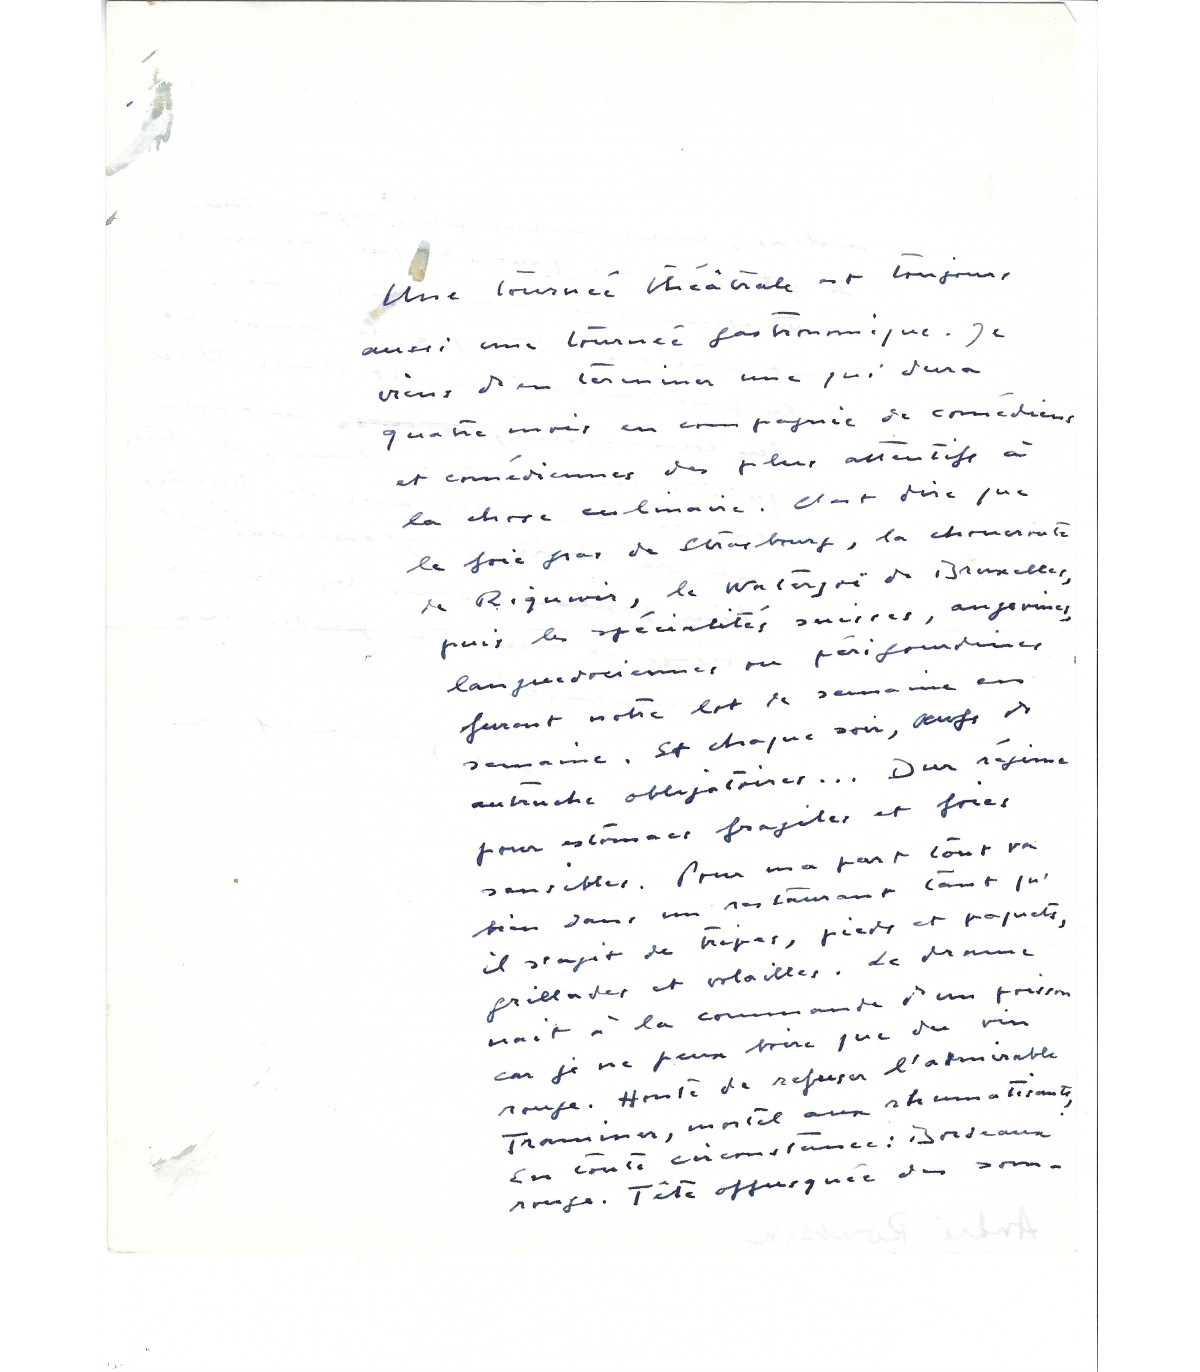 Une tournée théâtrale est toujours
aussi une tournée gastronomique. Je
viens d'en terminer une qui dura
quatre mois en compagnie de comédiens
et comédiennes des plus attentifs à
la chose culinaire. C'est dire que
le foie gras de Strasbourg, la choucroute
de Riquewir, le Waterzoï de Bruxelles,
puis les spécialités suisses, angevines,
languedociennes ou périgourdines
furent notre lot de semaine en
semaine. Et chaque soir, œufs de
autruche obligatoires... Dur régime
pour estomacs fragiles et foies
sensibles. Pour ma part tout va
bien dans un restaurant tant qu'
il s'agit de tripes, pieds et paquets,
grillades et volailles. Le drame
nait à la commande d'un poisson
car je ne peux boire que du vin
rouge. Honte de refuser l'admirable
Traminer, mortel aux rhumatisants,
En toute circonstance : Bordeaux
rouge. Tête offusquée du som-
André Roussin